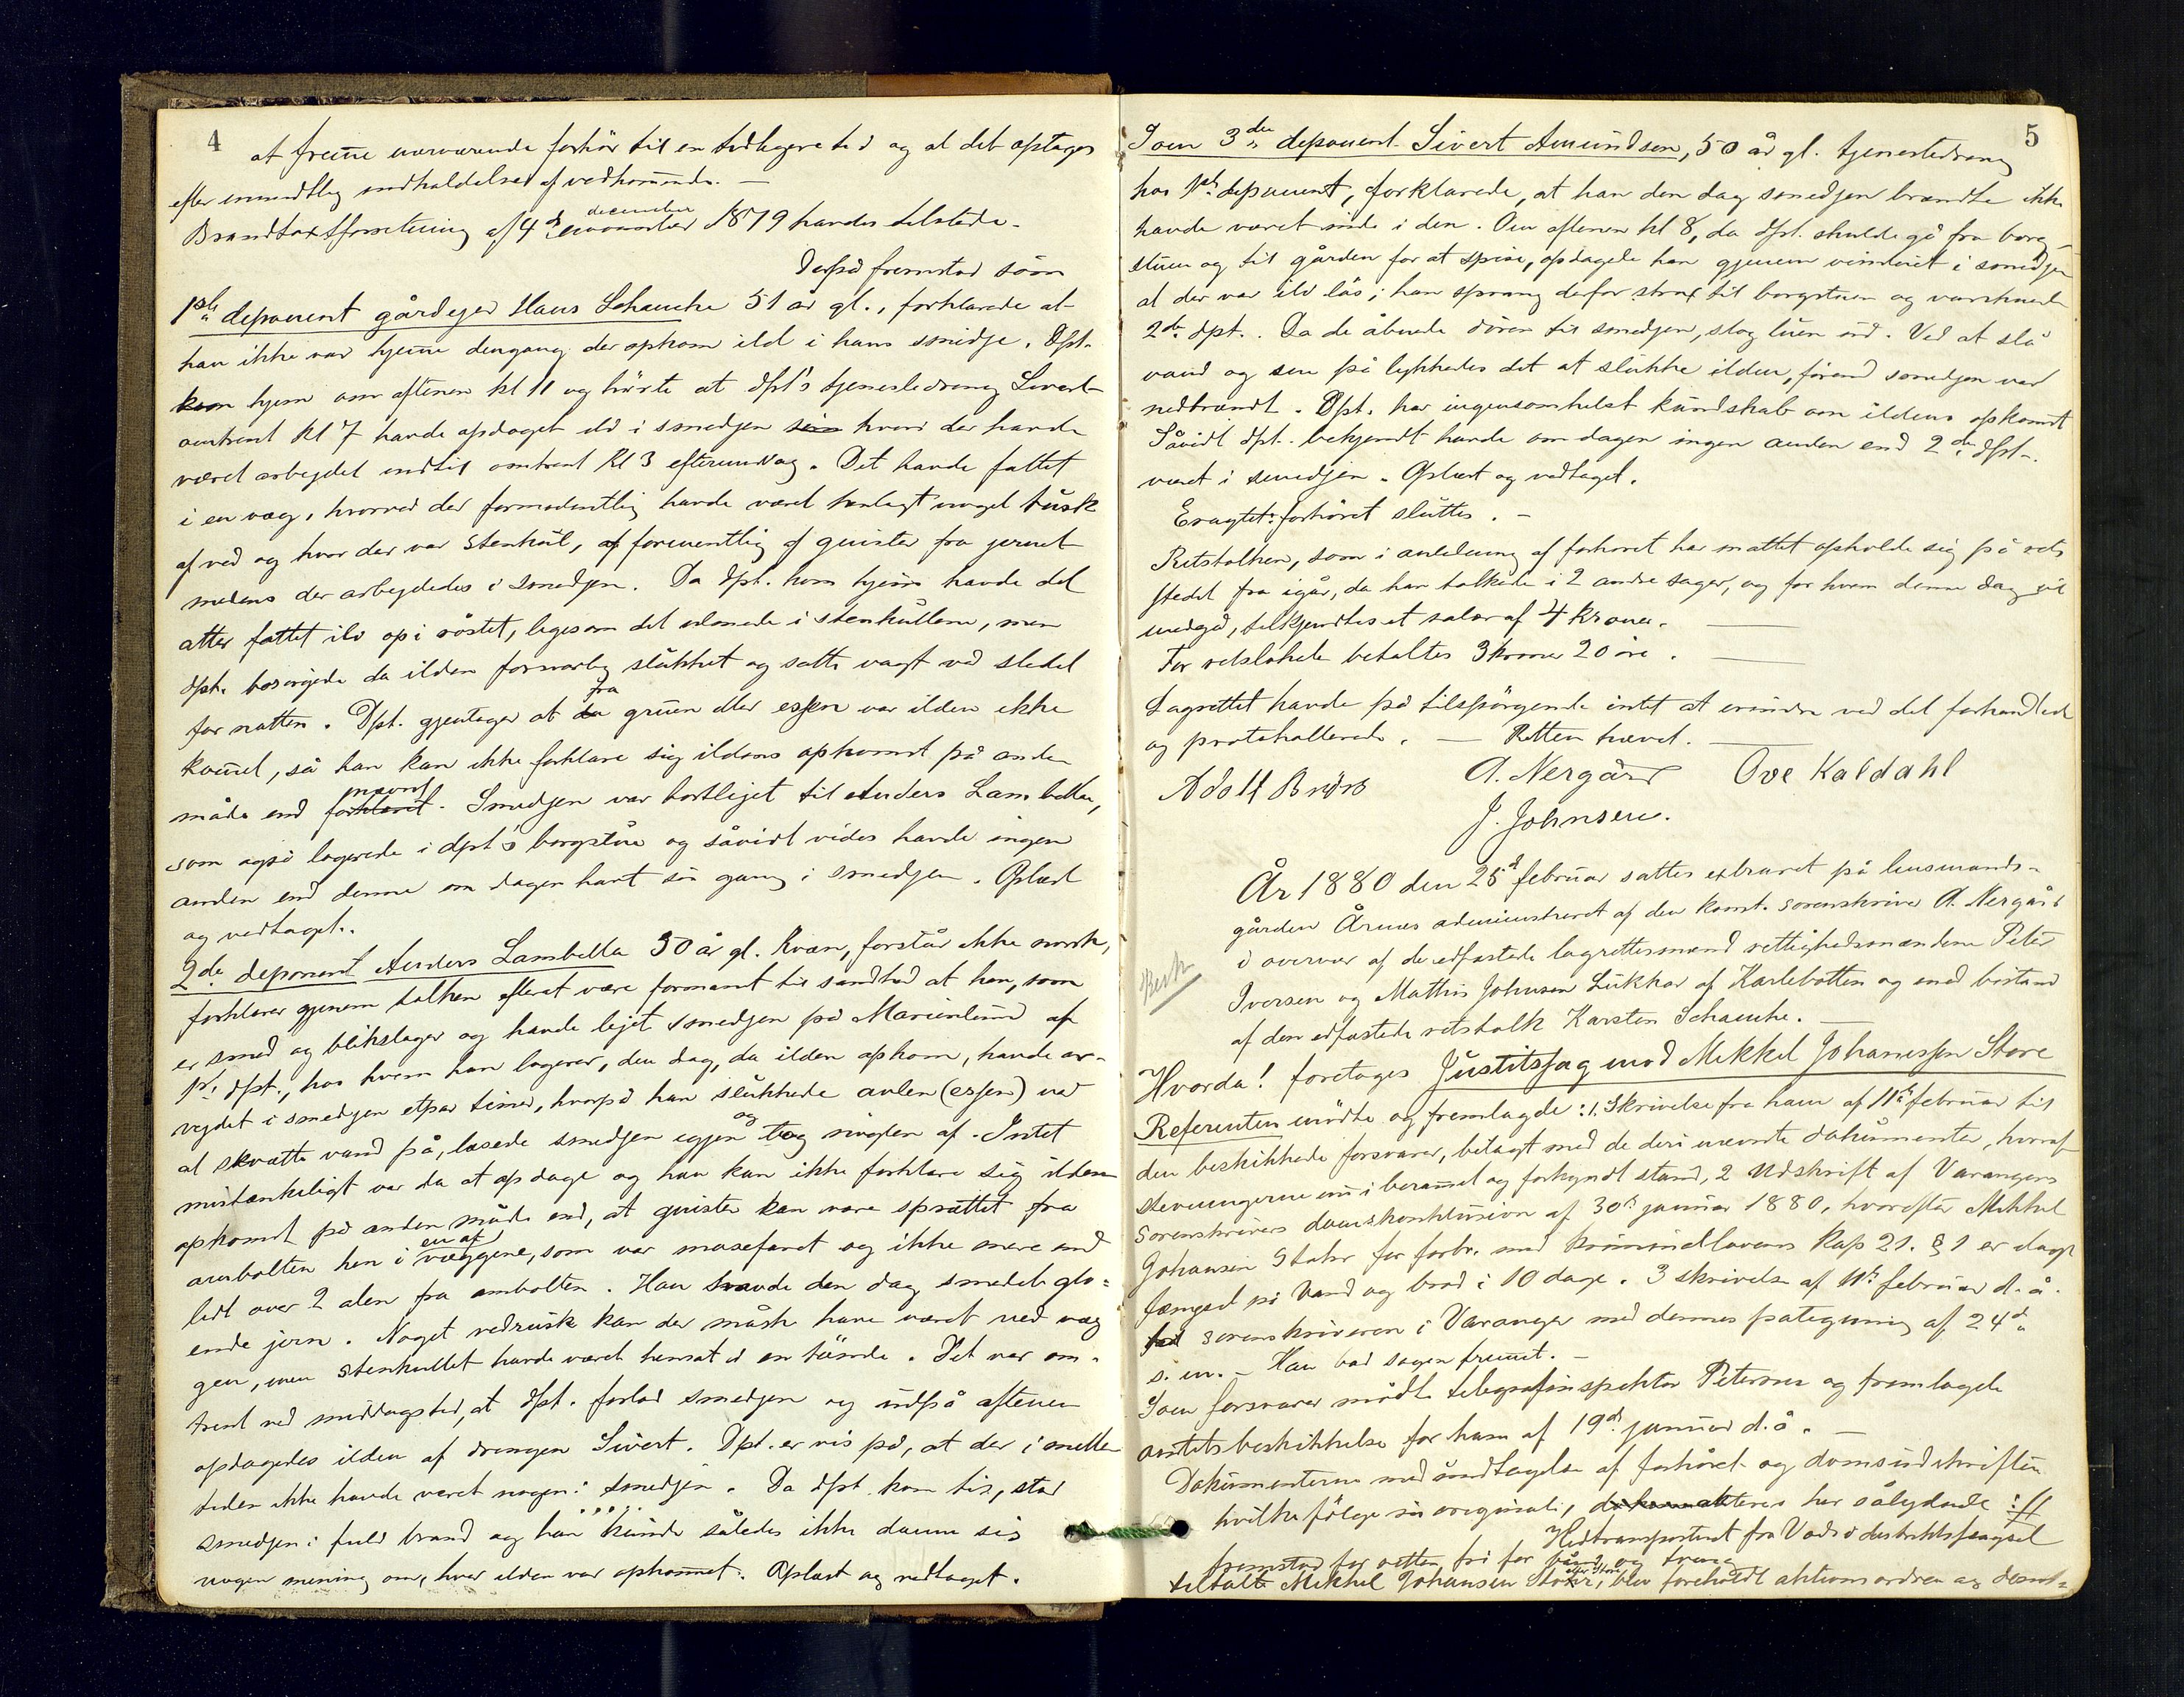 4
at fremme nærværende forhör til en tidligere tid og at det optages
efter mundtlig indkaldelse af vedkommende. —
Brandtaxtforretning af 4de december 1879 havdes tilstede.
Derpå fremstod som
1ste deponent gårdejer Hans Schancke 51 år gl., forklarede at
han ikke var hjemme dengang der opkom ild i hans smidje. Dpt.
kom hjem om aftenen kl 11 og hörte at dpt's tjenestedreng Sivert
omtrent kl 7 havde opdaget ild i smedjen hvori der havde
været arbejdet indtil omtrent kl 3 eftermiddag. Det havde fattet
i en væg, hvorved der formodentlig havde været henlagt noget rusk
af ved og hvor der var stenkul, formentlig af gnister fra jernet
medens der arbejdedes i smedjen. Da dpt. kom hjem havde det
atter fattet ild op i röstet, ligesom det ulmede i stenkullene, men
dpt. besörgede da ilden forsvarlig slukket og satte vagt ved stedet
for natten. Dpt. gjentager at fra gruen eller essen var ilden ikke
kommet, så han kan ikke forklare sig ildens opkomst på anden
måde end nævnt. Smedjen var bortlejet til Anders Lambella,
som også logerede i dpt's borgstue og såvidt vides havde ingen
anden end denne om dagen havt sin gang i smedjen. Oplæst
og vedtaget.
2de deponent Anders Lambella 30 år gl. Kvæn, forstår ikke norsk,
forklarer gjennem tolken efterat være formanet til sandhed at han, som
er smed og blikslager og havde lejet smedjen på Marienlund af
1ste dpt., hos hvem han logerer, den dag, da ilden opkom, havde ar-
bejdet i smedjen etpar timer, hvorpå han slukkede avlen (essen) ved
at skvætte vand på, låsede smedjen igjen og tog nöglen af. Intet
mistænkeligt var da at opdage og han kan ikke forklare sig ildens
opkomst på anden måde end, at gnister kan være sprættet fra
ambolten hen i en af væggene, som var mosefaret og ikke mere end
lidt over 2 alen fra ambolten. Han havde den dag smedet glo-
ende jern. Noget vedrusk kan der måske have været ved væg
gen, men stenkullet havde været hensat i en tönde. Det var om-
trent ved middagstid, at dpt. forlod smedjen og udpå aftenen
opdagedes ilden af drengen Sivert. Dpt. er vis på, at der i mellem
tiden ikke havde været nogen i smedjen. Da dpt. kom til, stod
smedjen i fuld brand og han kunde således ikke danne sig
nogen mening om, hvor ilden var opkommet. Oplæst og vedtaget.
5
Som 3die deponent Sivert Amundsen, 50 år gl. tjenestedreng
hos 1ste deponent, forklarede, at han den dag smedjen brændte ikke
havde været inde i den. Om aftenen kl 8, da dpt. skulde gå fra borg-
stuen og til gården for at spise, opdagede han gjennem vinduet i smedjen
at der var ild lös; han sprang derfor strax til borgstuen og varskuede
2de dpt. Da de åbnede dören til smedjen, slog luen ud. Ved at slå
vand og sne på lykkedes det at slukke ilden, förend smedjen var
nedbrændt. Dpt. har ingensomhelst kundskab om ildens opkomst
Såvidt dpt. bekjendt havde om dagen ingen anden end 2de dpt.
været i smedjen. Oplæst og vedtaget.
Eragtet: forhöret sluttes. —
Retstolken, som i anledning af forhöret har måttet opholde sig på rets
stedet fra igår, da han tolkede i 2 andre sager, og for hvem denne dag vil
medgå, tilkjendtes et salær af 4 kroner. —
For retslokale betaltes 3 kroner 20 öre. —
Lagrettet havde på tilspörgende intet at erindre ved det forhandlede
og protokollerede. — Retten hævet. —
A. Nergård Ove Kaldahl
J. Johnsen.
År 1880 den 25d februar sattes extraret på lensmands-
gården Årnes administreret af den konst. sorenskriver A. Nergård
i overvær af de edfæstede lagrettesmænd rettighedsmændene Peter
Iversen og Mathis Johnsen Lukkar af Karlebotten og med bistand
af den edfæstede retstolk Karsten Schancke. —
Hvorda! foretages Justitssag mod Mikkel Johannessen Store
Referenten mödte og fremlagde: 1. Skrivelse fra ham af 11te februar til
den beskikkede forsvarer, bilagt med de deri nævnte dokumenter, hvoraf
stevningerne nu i berammet og forkyndt stand, 2 Udskrift af Varangers
sorenskrivers domskonklusion af 30te januar 1880, hvorefter Mikkel
Johansen for forbr. mod kriminallovens Kap 21. § 1 er dagt
fængsel på Vand og bröd i 10 dage. 3 skrivelse af 11te februar d. å.
sorenskriveren i Varanger med dennes påtegning af 24de
s. m. — Han bad sagen fremmet. —
Som forsvarer mödte telegrafinspektör Petersen og fremlagde
amtets beskikkelse for ham af 19de januar d. å. —
Dokumenterne med undtagelse af forhöret og domsudskriften
hvilke fölge in originali, her sålydende: ff
Hidtransporteret fra Vadsö distriktsfængsel
fremstod for retten fri for bånd og tvang
tiltalte Mikkel Johansen eller Store, blev foreholdt aktionsordren og